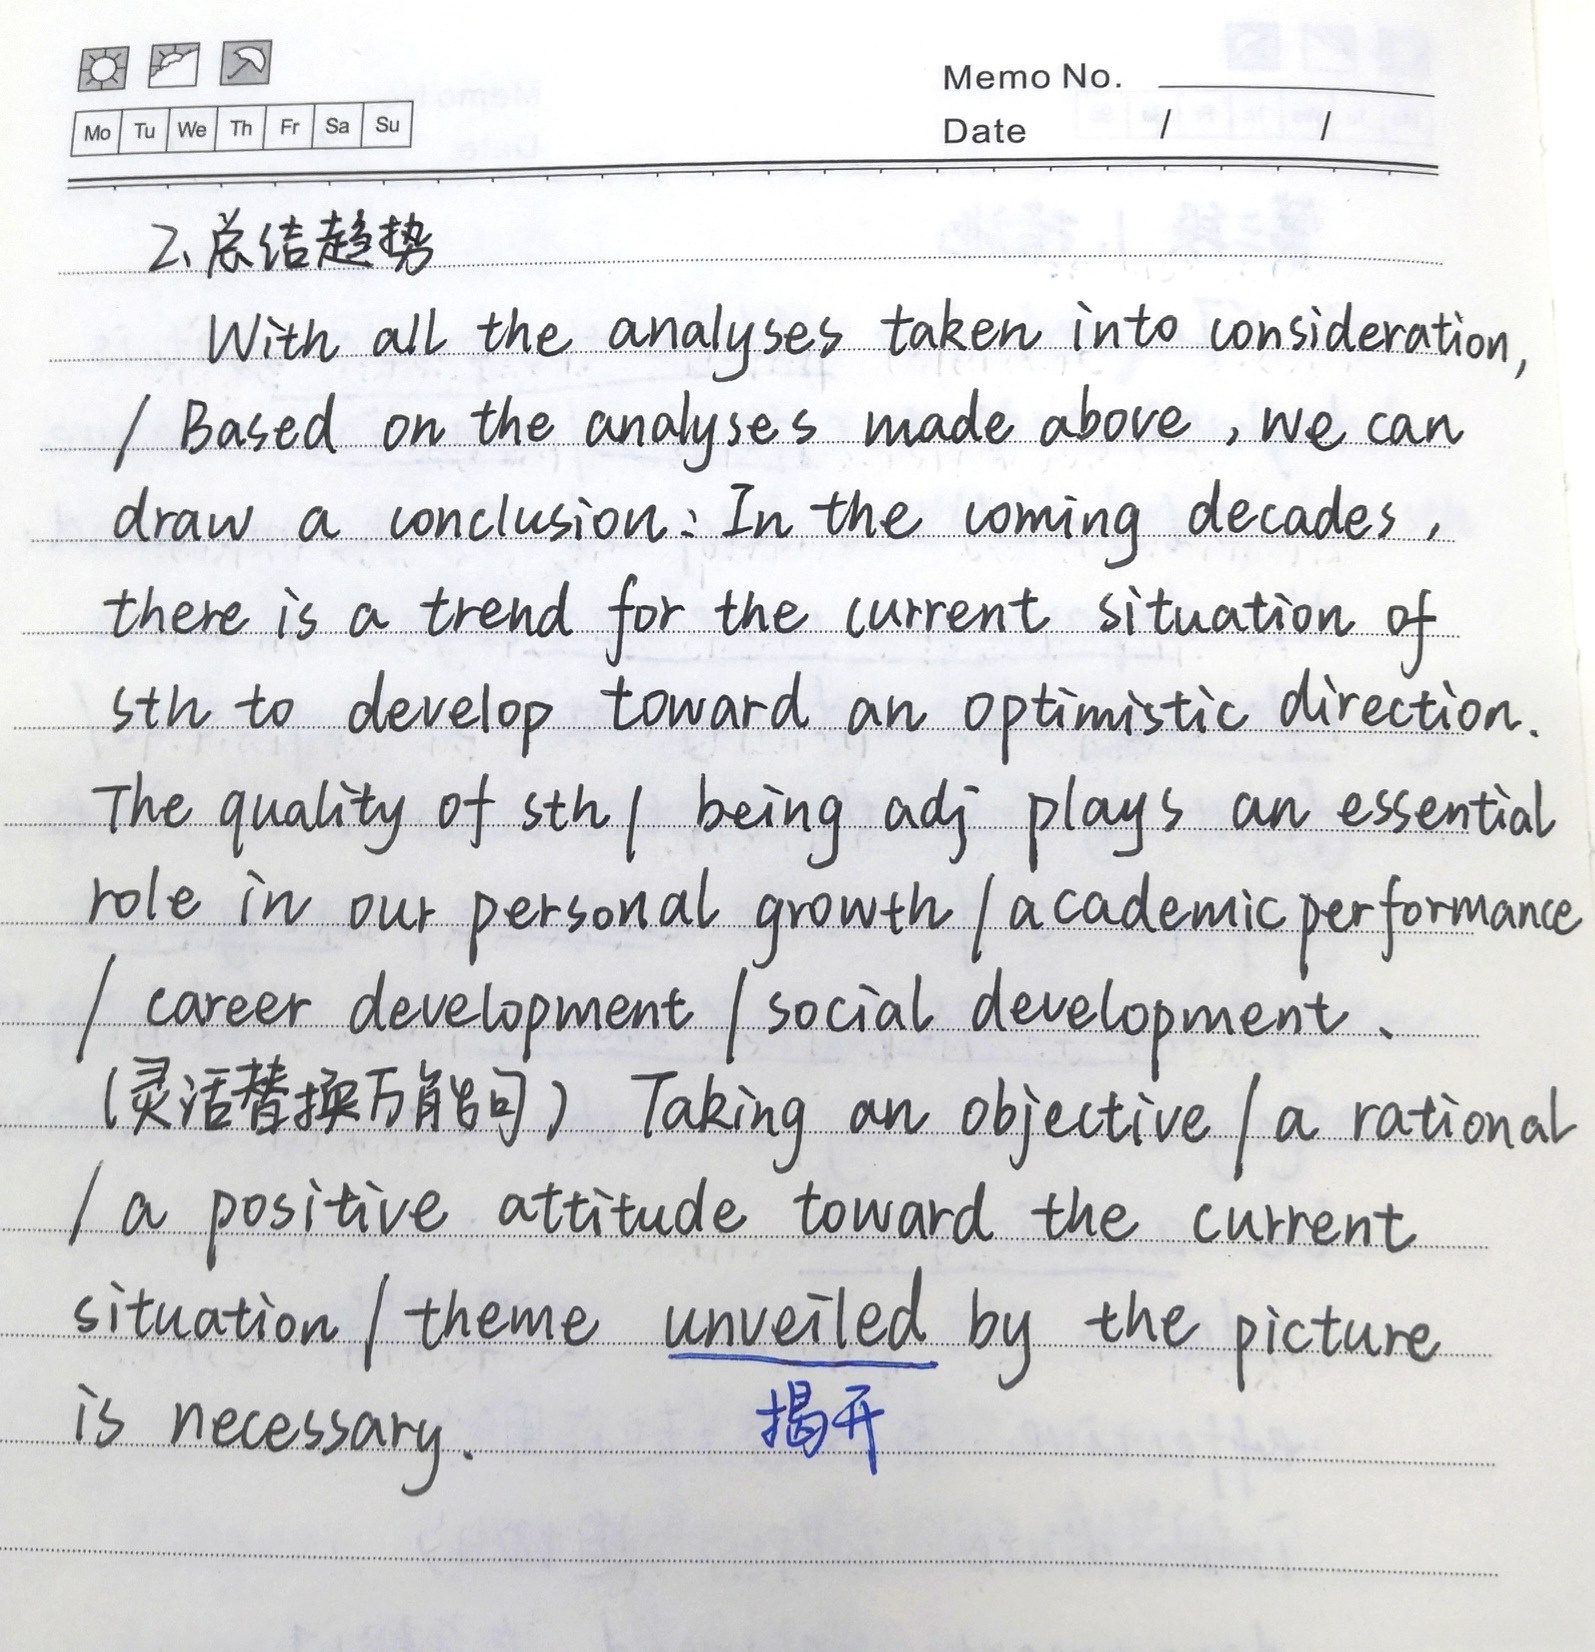 Memo No.
Mo Tu We Th Fr Sa Su
Date / /
2、总结趋势
With all the analyses taken into consideration,
/ Based on the analyses made above, we can
draw a conclusion: In the coming decades,
there is a trend for the current situation of
sth to develop toward an optimistic direction.
The quality of sth / being adj plays an essential
role in our personal growth / academic performance
/ career development / social development.
(灵活替换万能句) Taking an objective / a rational
/ a positive attitude toward the current
situation / theme unveiled by the picture
揭开
is necessary.